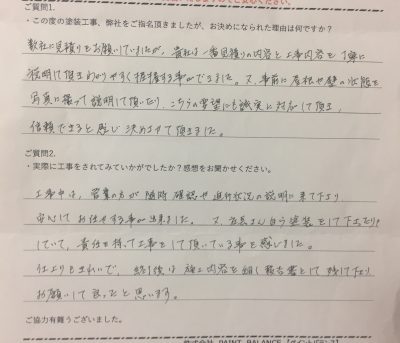 ご質問1.
・この度の塗装工事、弊社をご指名頂きましたが、お決めになられた理由は何ですか?
数社に見積りをお願いしていましたが、貴社は一番見積りの内容と工事内容を丁寧に
説明して頂きわかりやすく把握する事ができました。又、事前に屋根や壁の状態を
写真に撮って説明して頂いたり、こちらの要望にも誠実に対応して頂き、
信頼できると感じ決めさせて頂きました。
ご質問2.
・実際に工事をされてみていかがでしたか?感想をお聞かせください。
工事中は、営業の方が随時確認や進行状況の説明に来て下さり
安心してお任せする事が出来ました。又、社長さん自ら塗装をして下さったり
していて、責任を持って工事をして頂いている事を感じました。
仕上りもきれいで、終了後は施工内容を細く報告書として残して下さり
お願いして良かったと思います。
ご協力有難うございました。
PAINT BALANCE